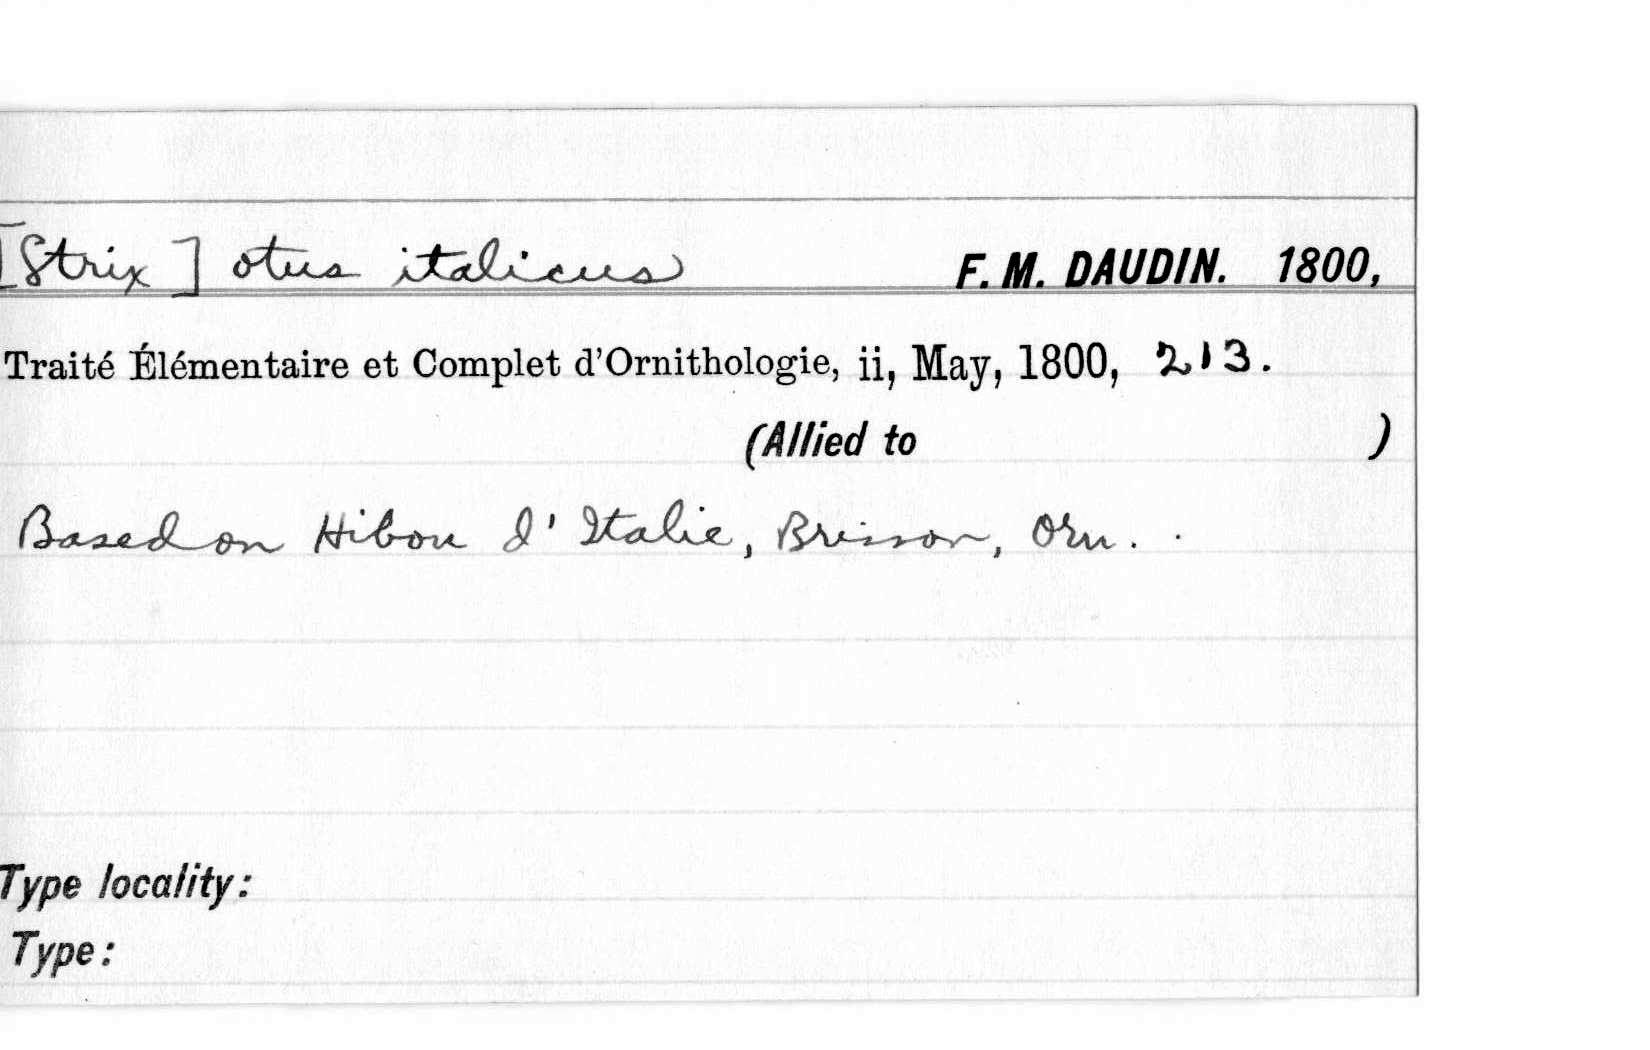 [Strix] otus italicus F. M. DAUDIN. 1800,
Traité Élémentaire et Complet d'Ornithologie, ii, May, 1800, 213.
(Allied to )
Based on Hibou d'Italie, Brisson, Orn. .
Type locality:
Type: